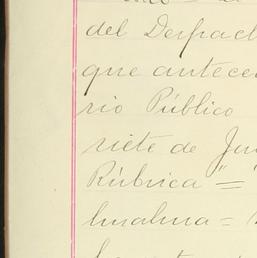 del Despac
que antece
rio Público
siete de Ju
Rúbrica =